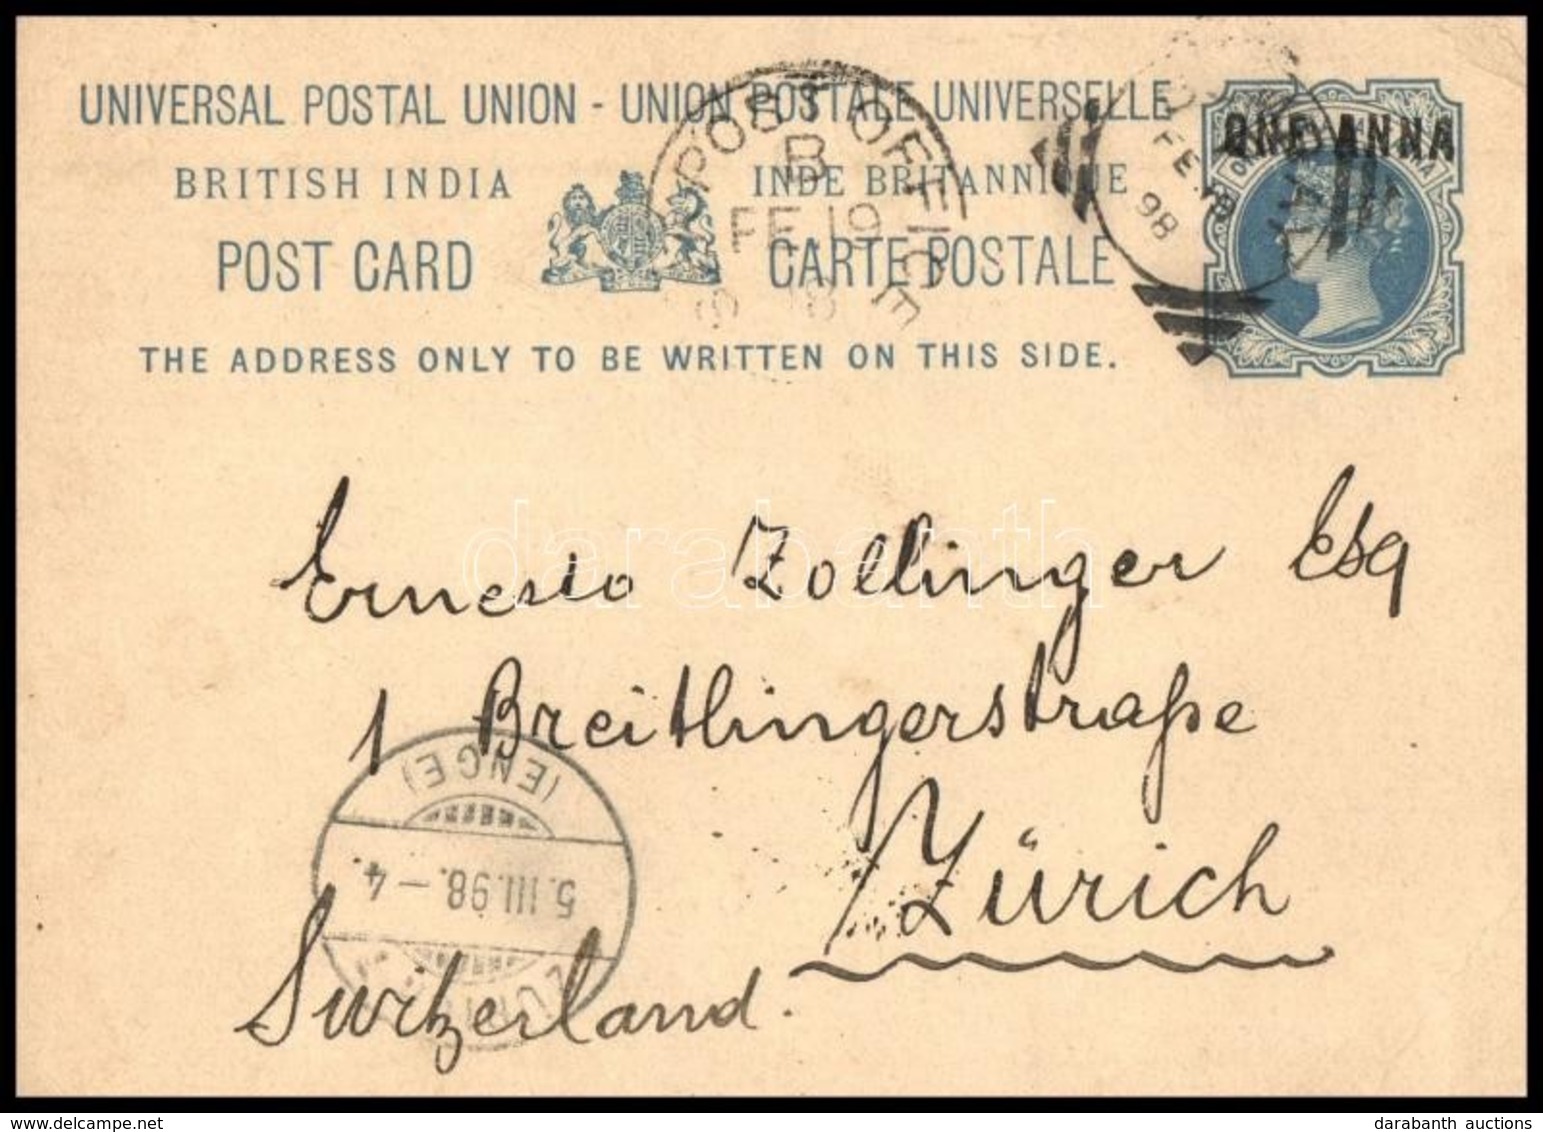 UNIVERSAL POSTAL UNION - UNION POSTALE UNIVERSELLE
BRITISH INDIA INDE BRITANNIQUE
POST CARD CARTE POSTALE
THE ADDRESS ONLY TO BE WRITTEN ON THIS SIDE.
ONE ANNA
POST OFFICE
B
FE.19
98
FE.18
98
Ernesto Zollinger Esq
1 Breitlingerstraße
Zürich
Switzerland.
(ENGE)
5.III.98.-4.
ZÜRICH
darabanth
darabanth auctions